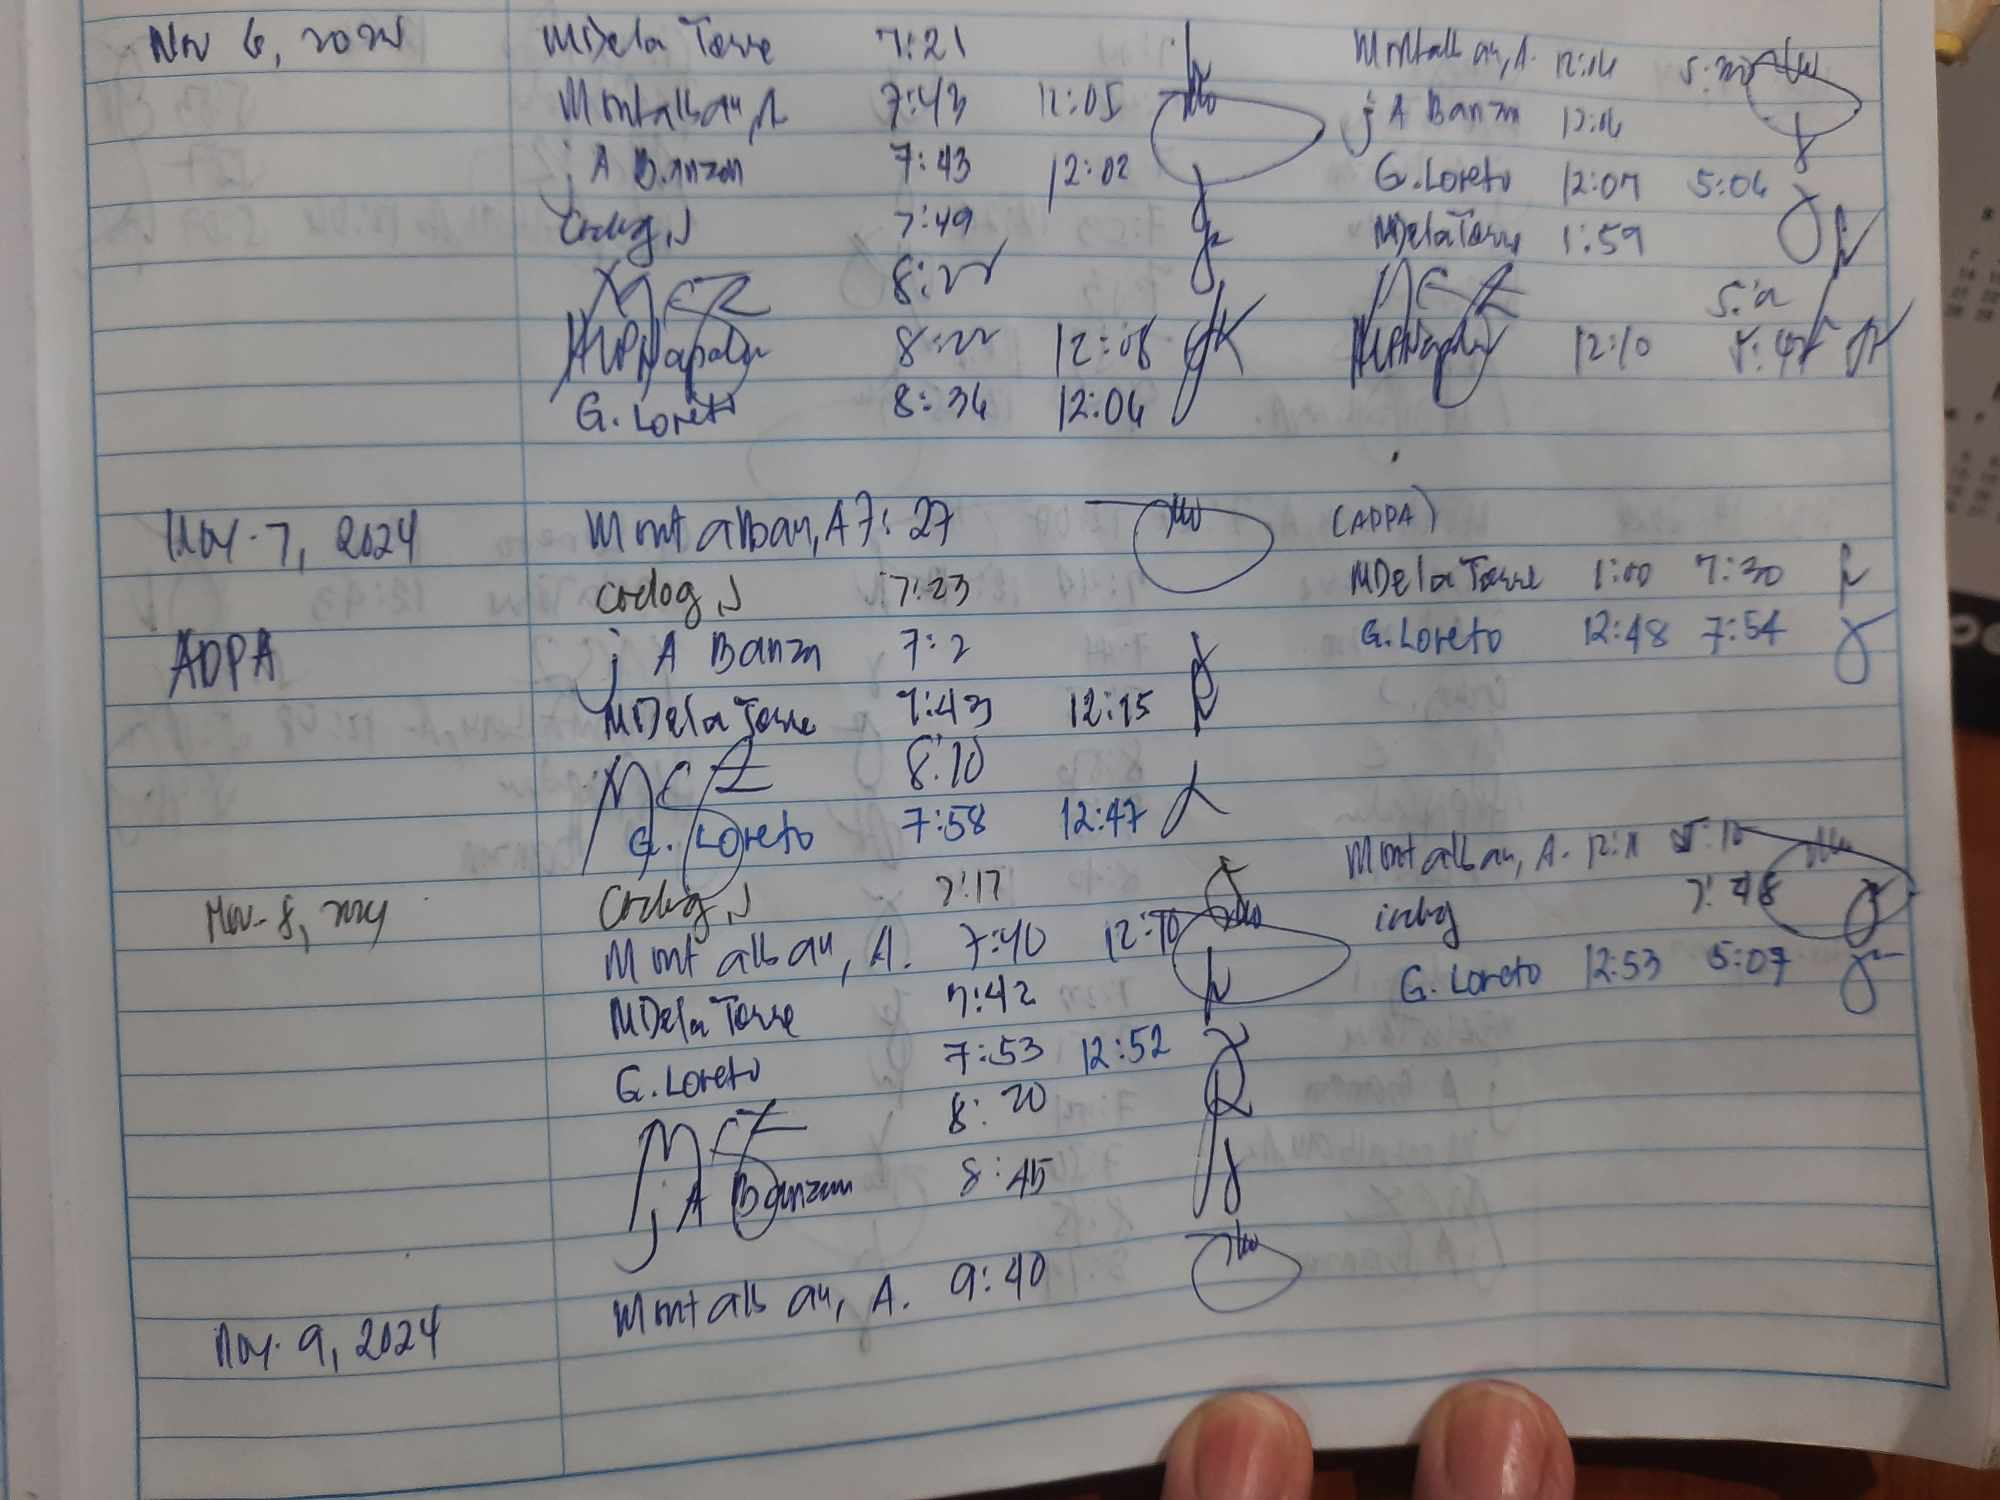 Nov 6, 2024
MDela Torre 7:21
Montalban, A 7:43 12:05
j A Banzon 7:43 12:02
Codog, J 7:49
MCZ 8:22
8:22 12:08
G. Loreto 8:34 12:04
Montalban, A. 12:06
j A Banzon 12:06
G. Loreto 12:07 5:06
MDelaTorre 1:59
MCZ
12:10
Nov. 7, 2024
ADPA
Montalban, A 7:27
Codog, J 7:23
j A Banzon 7:2
MDela Torre 7:43 12:15
MCZ 8:10
G. Loreto 7:58 12:47
(ADPA)
MDela Torre 1:00 7:30
G. Loreto 12:48 7:54
Nov. 8, 2024
Codog, J 7:17
Montalban, A. 7:40 12:10
MDela Torre 7:42
G. Loreto 7:53 12:52
MCZ 8:20
j A Banzon 8:45
Montalban, A. 12:11 5:10
7:48
G. Loreto 12:53 5:07
Nov. 9, 2024
Montalban, A. 9:40